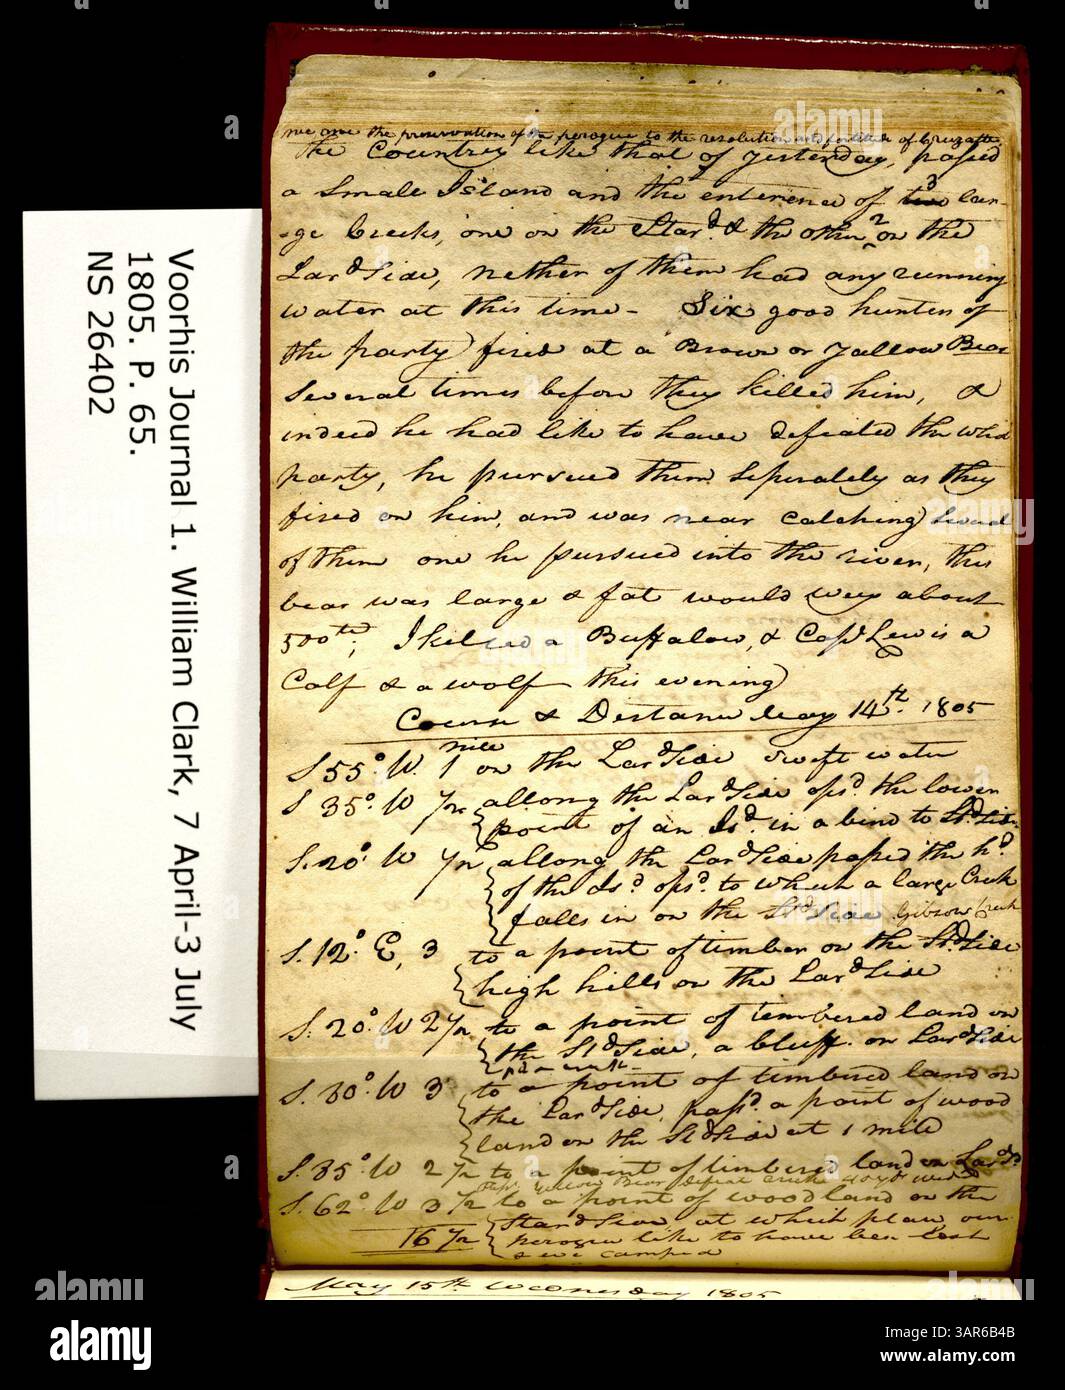 we owe the preservation of the perogue to the resolution and fortitude of Cruzatte
the Countrey like that of yesterday, passed
a Small Island and the enterence of two 3 lar-
-ge Creeks, one on the Stard. & the other 2 on the
Lard Side, nether of them had any running
water at this time - Six good hunters of
the party fired at a Brown or Yellow Bear
Several times before they killed him, &
indeed he had like to have defeated the whole
party, he pursued them Seperately as they
fired on him, and was near Catching Several
of them one he pursued into the river, this
bear was large & fat would way about
500 wt; I killed a Buffalow, & Capt. Lewis a
Calf & a wolf this evening
Course & Distance May 14th. 1805
S. 55° W. 1 mile on the Lard Side Swift water
S 35° W 1/2 allong the Lard Side opsd. the lower
point of an Isd. in a bind to Std. Side
S. 20° W 1/2 allong the Lard Side passed the hd.
of the Isd. opsd. to which a large Creek
falls in on the Std Side Gibsons Creek
S. 12° E, 3 to a point of timber on the Std Side
high hills on the Lard Side
S. 20° W 2 1/2 to a point of timbered land on
the Std Side, a bluff on Lard Side
psd a creek -
S. 80° W 3 to a point of timbered land on
the Lard Side, passd. a point of wood
land on the Std Side at 1 mile
S. 85° W 2 1/2 to a point of timbered land on Lard.
Yellow Bear defeat Creek 40 yds wide
S. 62° W 3 1/2 to a point of wood land on the
Stard Side, at which place our
16 1/2 perogue like to have been lost
& we camped
May 15th Wednesday 1805
Voorhis Journal 1. William Clark, 7 April-3 July
1805. P. 65.
NS 26402
alamy
Image ID: 3AR6B4B
www.alamy.com